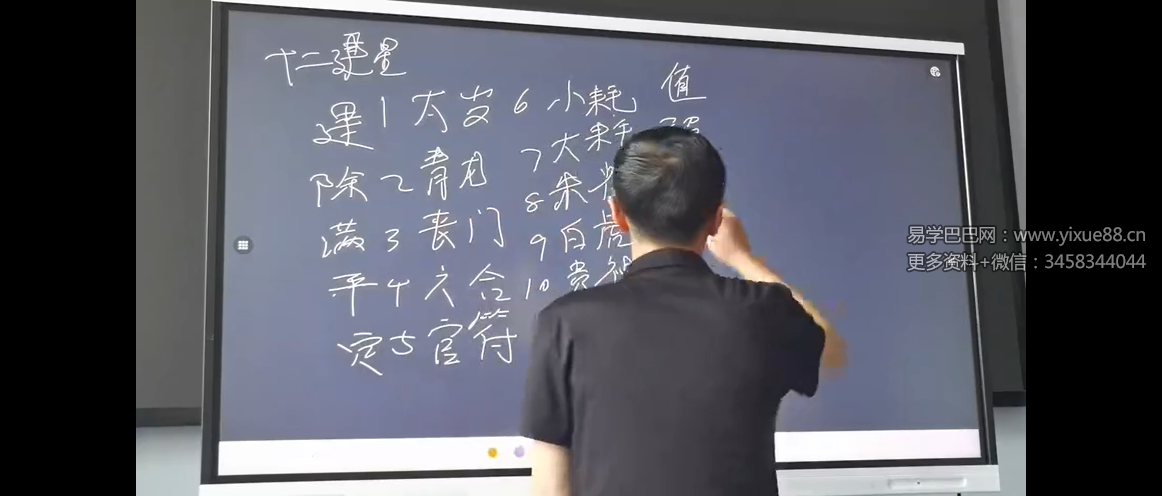 十二建星
建 1 太岁 6 小耗 值
除 2 青龙 7 大耗
满 3 丧门 8 朱
平 4 六合 9 白虎
定 5 官符 10 贵
易学巴巴网：www.yixue88.cn
更多资料+微信：3458344044